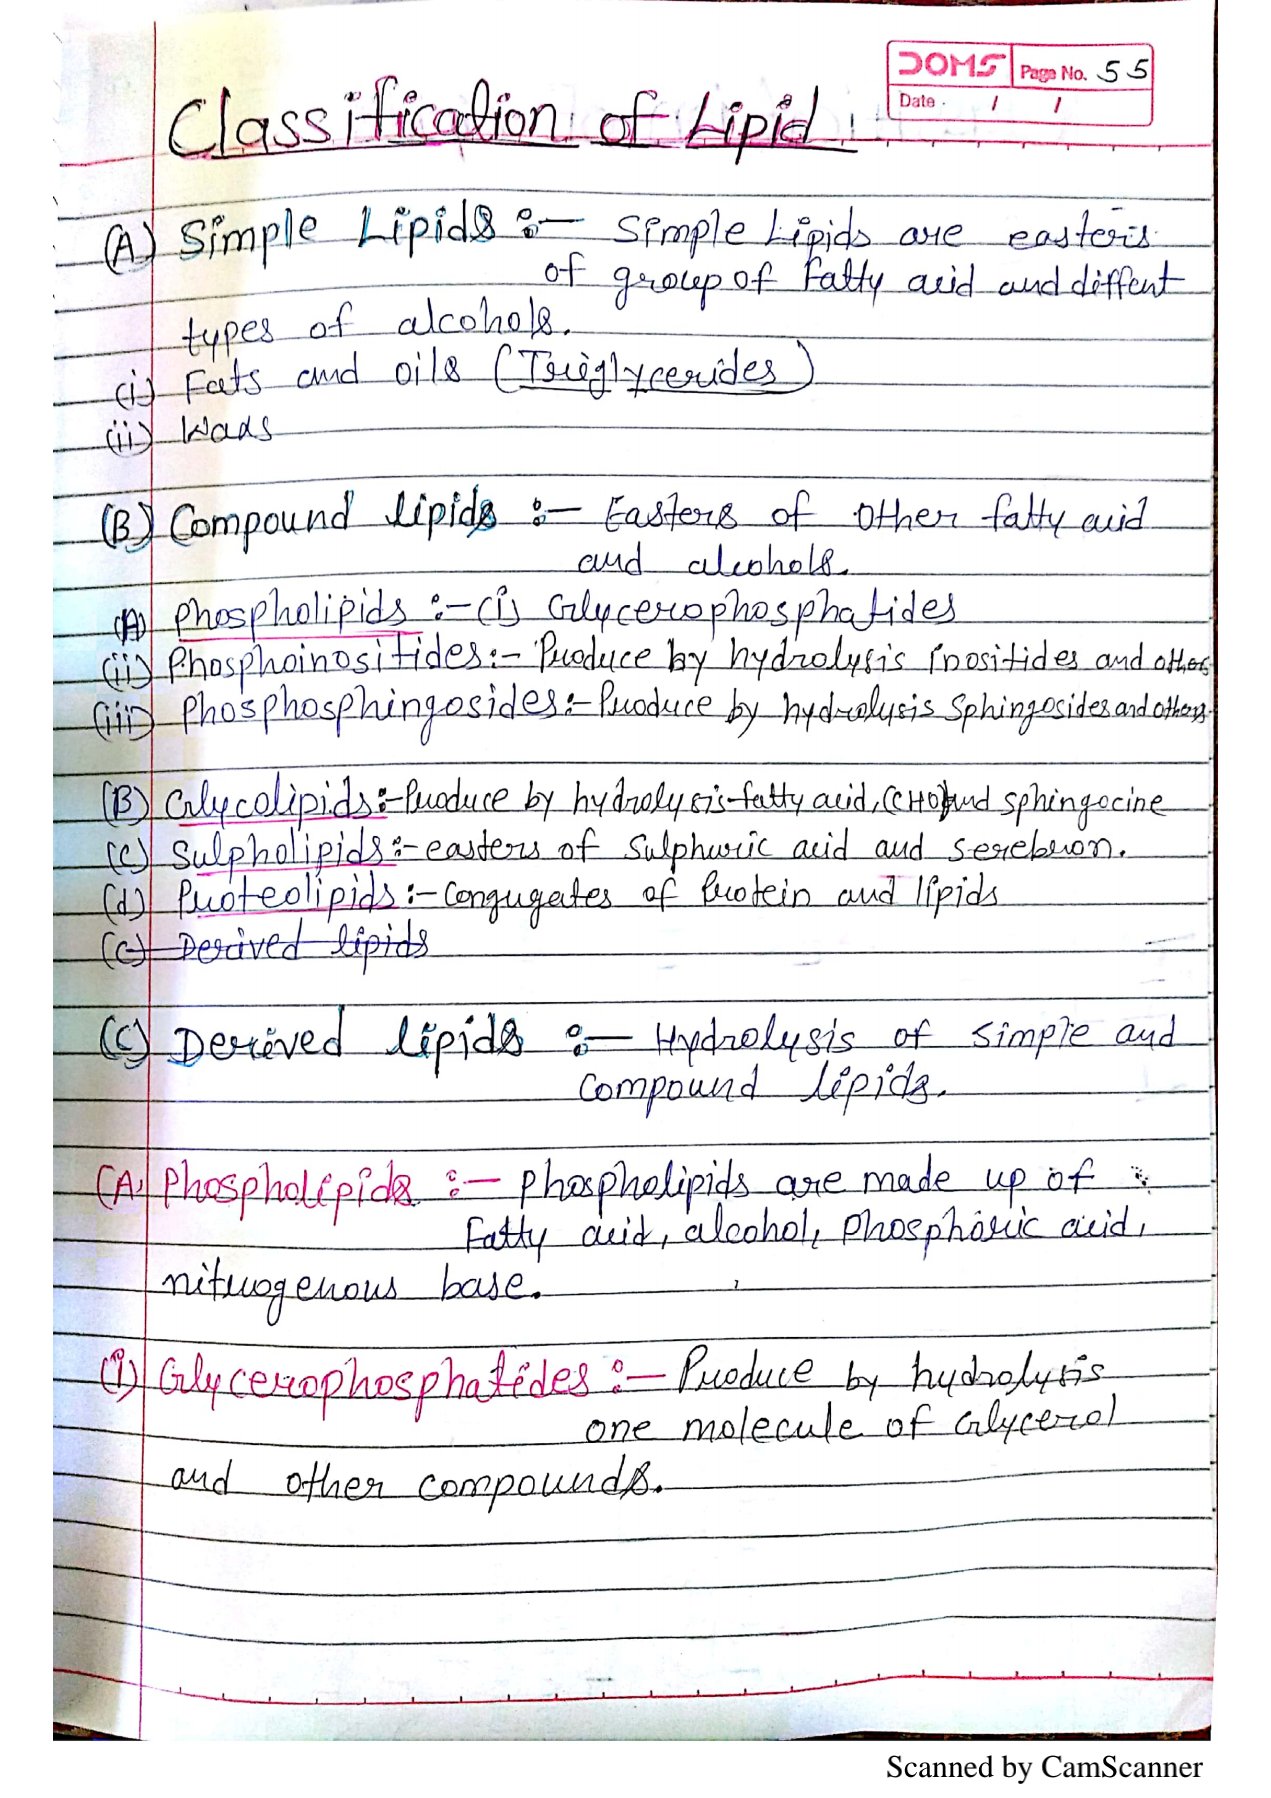 DOMS Page No. 55
Date / /
Classification of Lipid
(A) Simple Lipids :- Simple Lipids are easteris
of group of fatty acid and diffent
types of alcohols.
(i) Fats and oils (Trieglycerides)
(ii) Waxs
(B) Compound lipids :- Easters of other fatty acid
and alcohols.
(A) Phospholipids :- (i) Glycerophosphatides
(ii) Phosphoinositides :- Produce by hydrolysis inositides and others
(iii) Phosphosphingosides :- Produce by hydrolysis Sphingosides and others
(B) Glycolipids :- Produce by hydrolysis-fatty acid, (CHO) and sphingocine
(c) Sulpholipids :- easters of Sulphuric acid and serebron.
(d) Proteolipids :- Congugates of Protein and lipids
(c) Derived lipids
(C) Derived lipids :- Hydrolysis of simple and
compound lipids.
(A) Phospholipids :- Phospholipids are made up of
Fatty acid, alcohol, Phosphoric acid,
nitrogenous base.
(i) Glycerophosphatides :- Produce by hydrolysis
one molecule of Glycerol
and other compounds.
Scanned by CamScanner